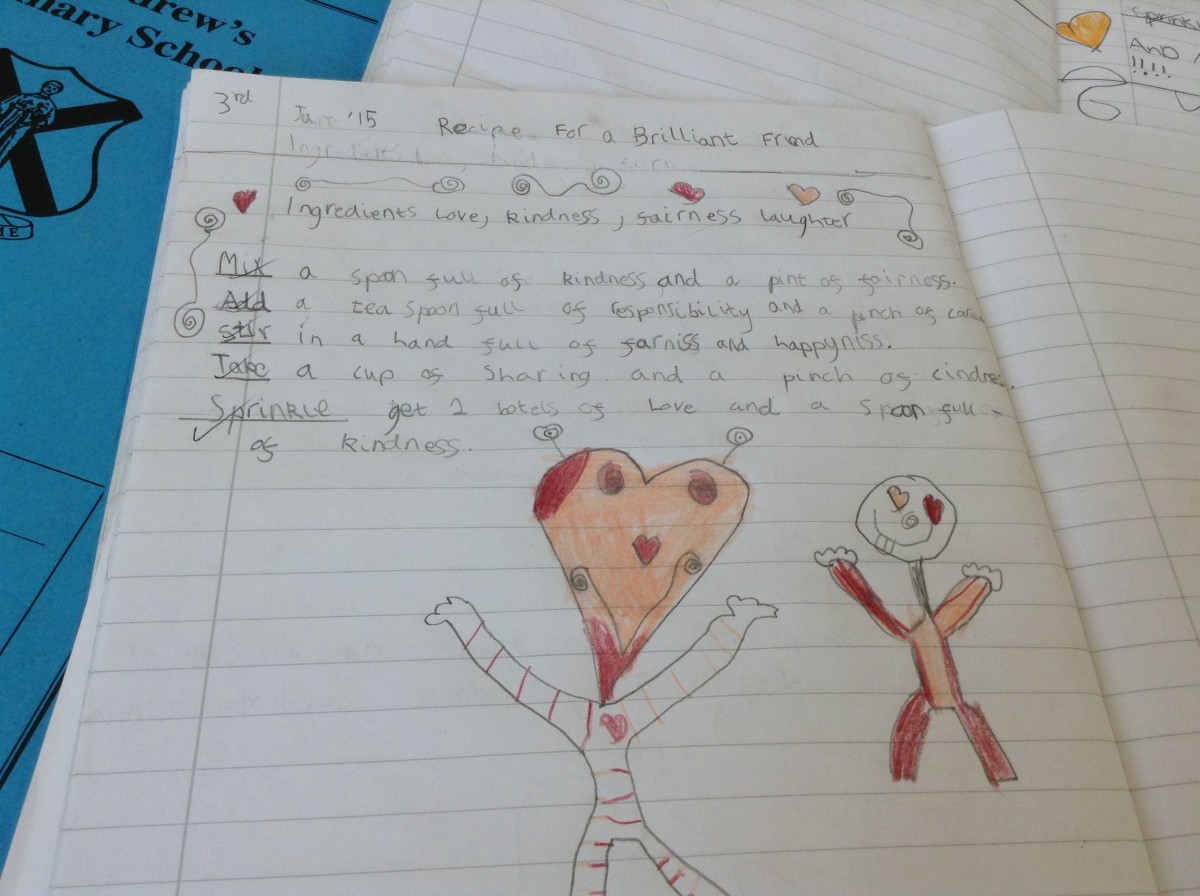 drew's
mary School
3rd
June '15 Recipe For a Brilliant Friend
Ingredients
Ingredients Love, kindness, fairness laughter
Mix a spoon full of kindness and a pint of fairness.
Add a tea spoon full of responsibility and a pinch of
stir in a hand full of farniss and happyniss.
Take a cup of Sharing. and a pinch of
Sprinkle get 2 botels of Love and a spoon full
of kindness.
AnD
!!!!